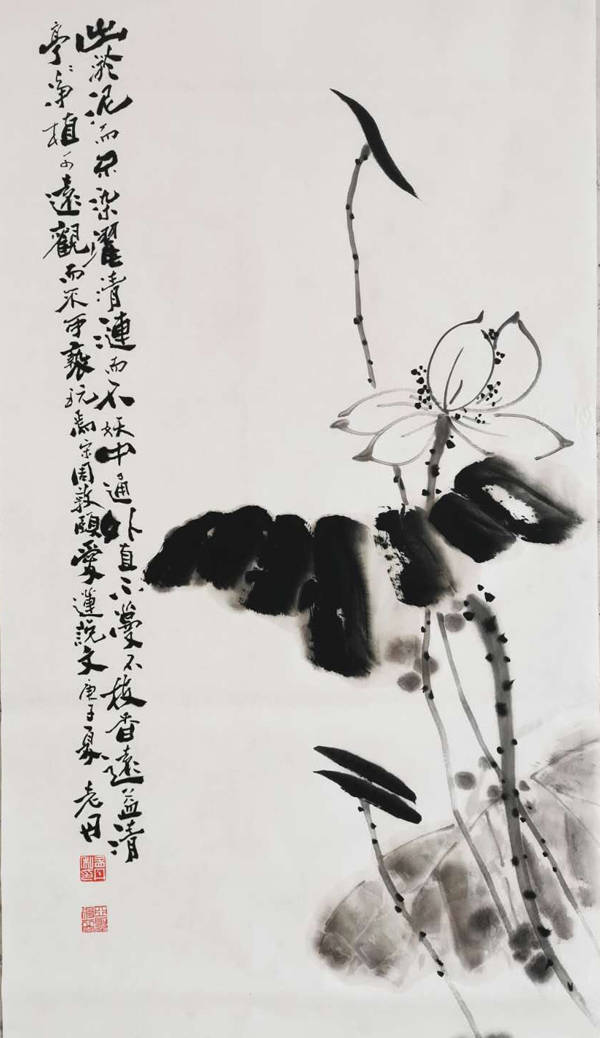 出淤泥而不染濯清漣而不妖中通外直不蔓不枝香遠益清
亭〻淨植可遠觀而不可褻玩焉宋周敦頤愛蓮說文庚子夏老丹